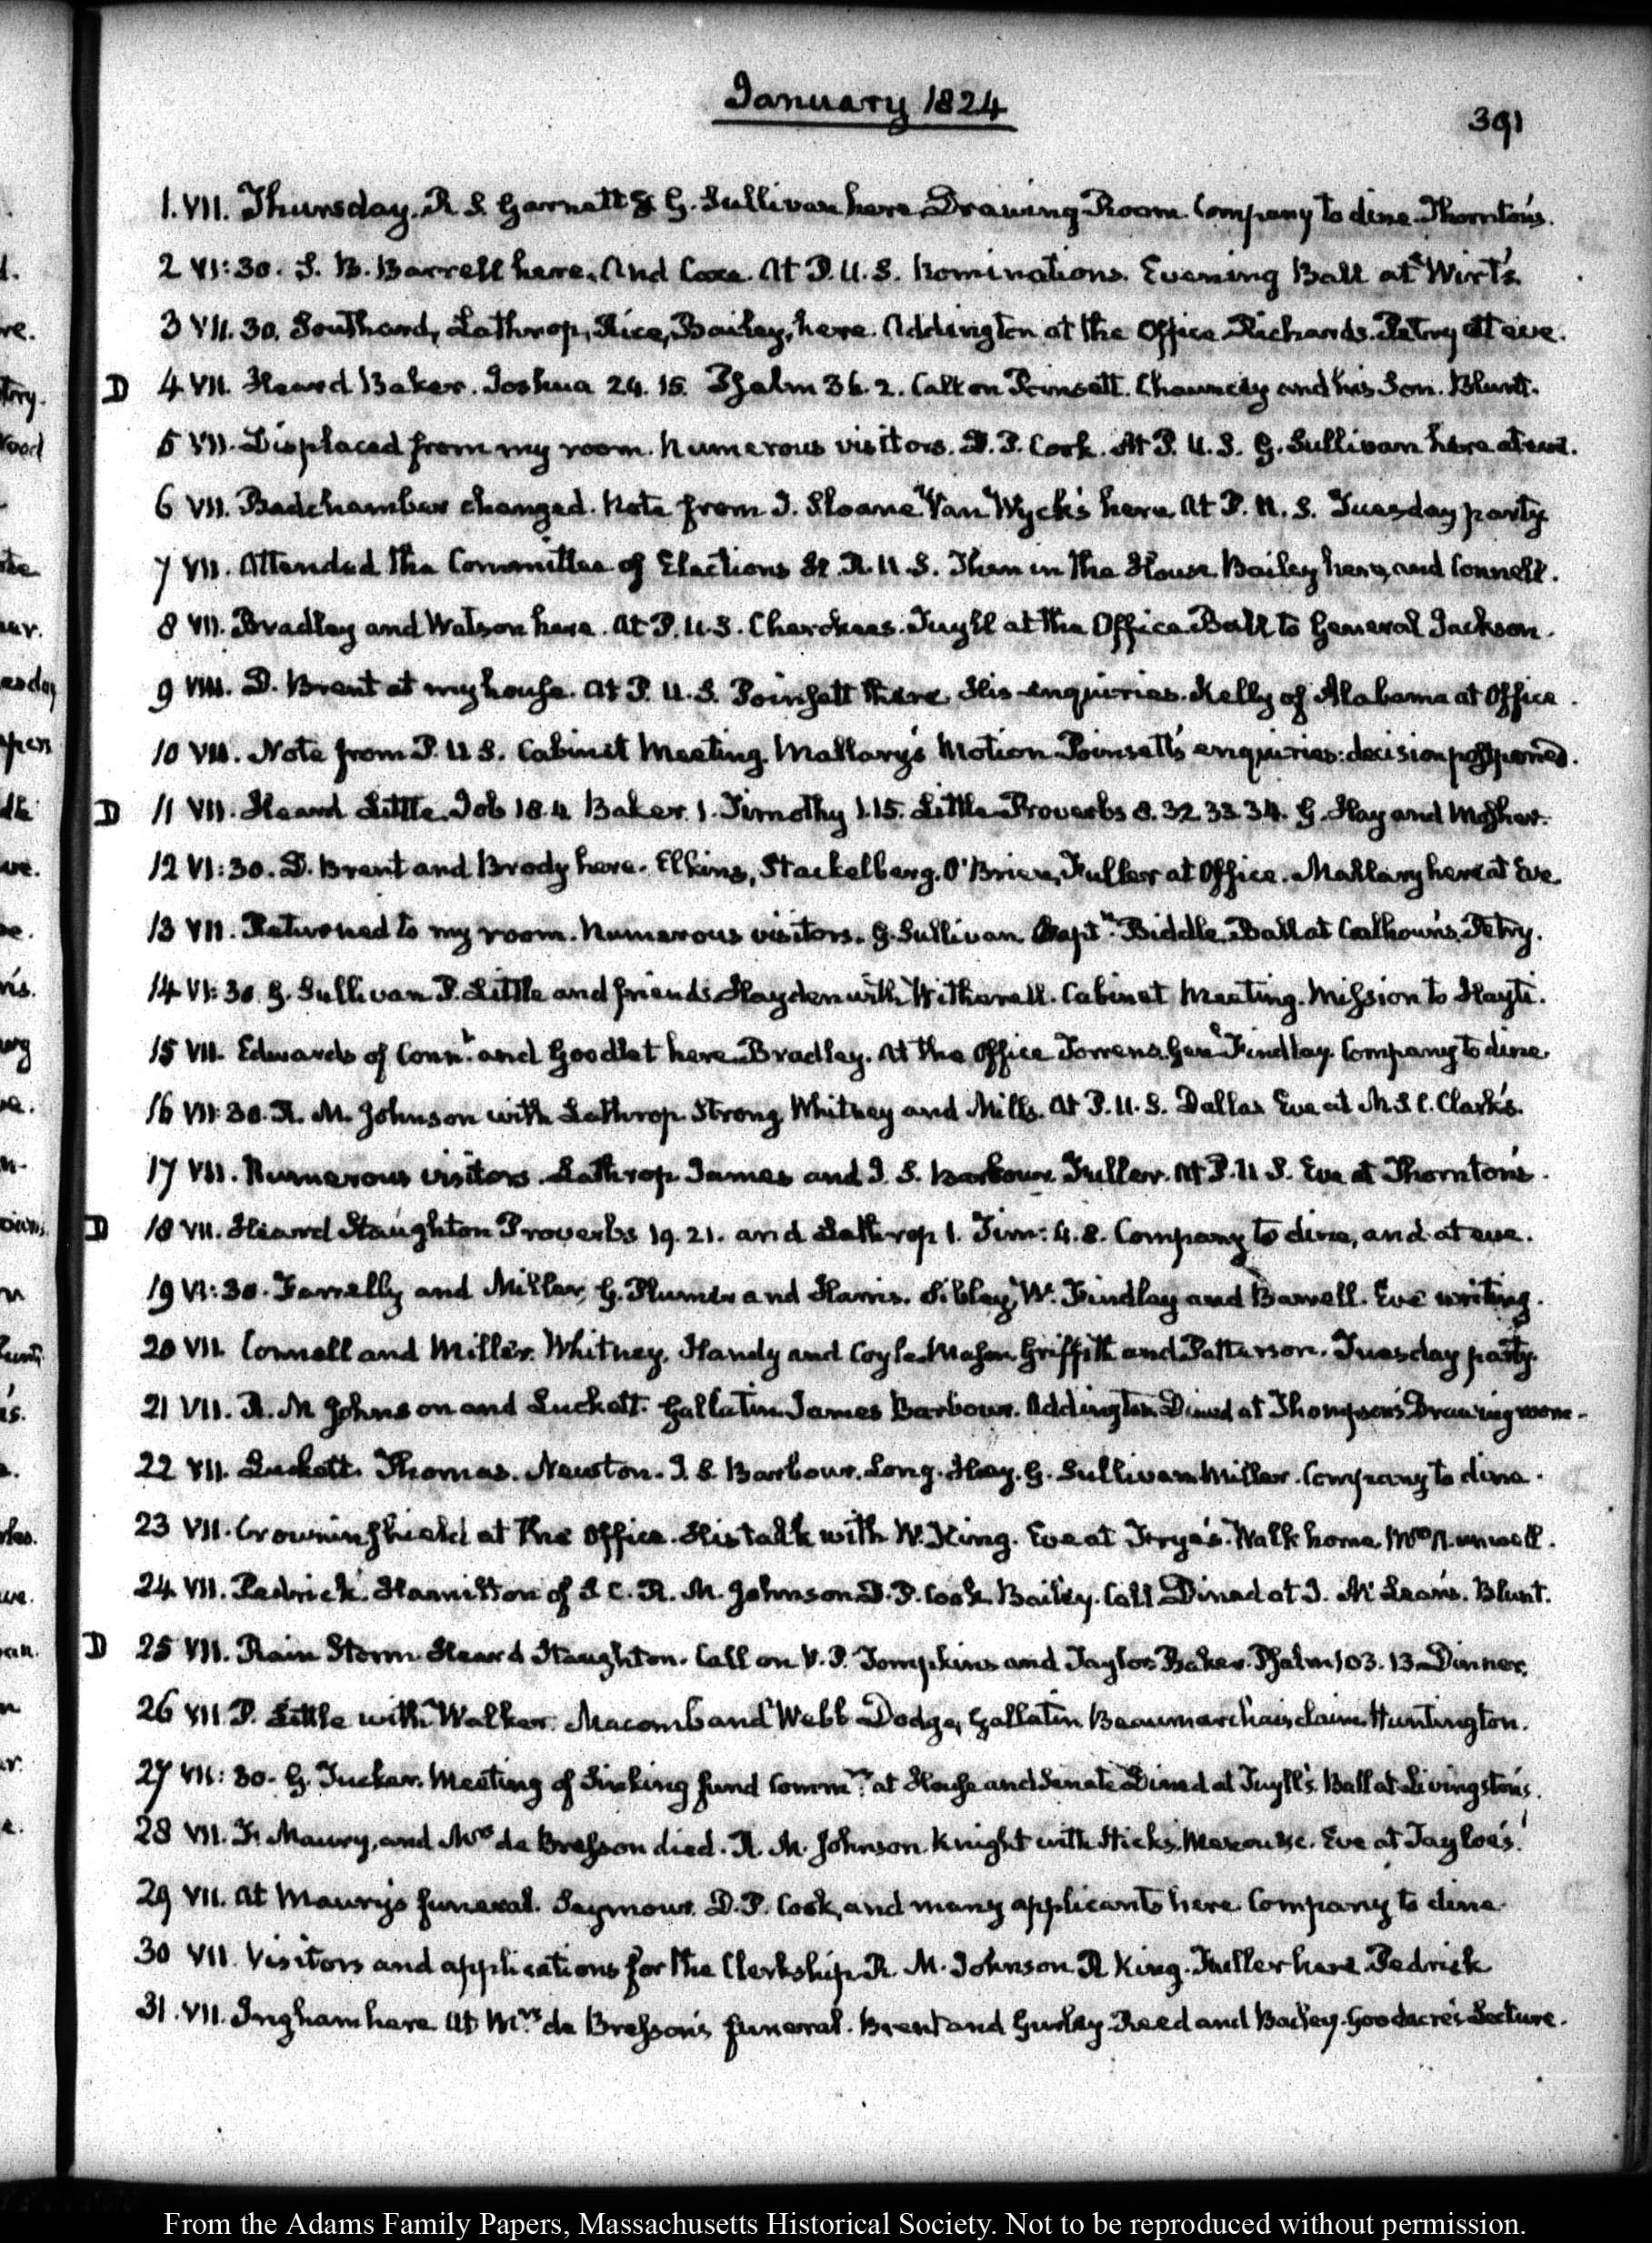 January 1824
391
1. VII. Thursday. R S. Garnett & G. Sullivan here. Drawing Room. Company to dine. Thornton's.
2 VI:30. S. B. Barrell here. And Coxe. At P. U. S. Nominations. Evening Ball at Wirt's.
3 VII. 30. Southard, Lathrop, Rice, Bailey, here. Addington at the Office. Richards. Petry at eve.
D 4 VII. Heard Baker. Joshua 24. 15. Psalm 36. 2. Call on Poinsett. Chauncey and his Son. Blunt.
5 VII. Displaced from my room. Numerous visitors. D. P. Cook. At P. U. S. G. Sullivan here at eve.
6 VII. Bedchamber changed. Note from J. Sloane. Van Wyck's here. At P. U. S. Tuesday party
7 VII. Attended the Committee of Elections H. R. U S. Then in the House. Bailey here, and Connell.
8 VII. Bradley and Watson here. At P. U. S. Cherokees. Tuyll at the Office. Ball to General Jackson.
9 VIII. D. Brent at my house. At P. U. S. Poinsett there. His enquiries. Kelly of Alabama at Office.
10 VII. Note from P. U S. Cabinet Meeting. Mallary's Motion. Poinsett's enquiries: decision postponed.
D 11 VII. Heard Little. Job 18. 4. Baker. 1. Timothy 1. 15. Little Proverbs 8. 32. 33. 34. G. Hay and Mosher.
12 VI:30. D. Brent and Brody here. Elkins, Stackelberg. O'Brien, Fuller at Office. Mallary here at Eve
13 VII. Returned to my room. Numerous visitors. G. Sullivan. Captn. Biddle. Ball at Calhoun's. Petry.
14 VI: 30. G. Sullivan. P. Little and friends. Hayden with Witherell. Cabinet Meeting. Mission to Hayti.
15 VII. Edwards of Connt. and Goodlet here. Bradley. At the Office Torrens. Genl. Findlay. Company to dine.
16 VII: 30. R. M. Johnson with Lathrop. Strong. Whitney and Mills. At P. U. S. Dallas. Eve at M. S. C. Clark's.
17 VII. Numerous visitors. Lathrop. James and J. S. Barbour. Fuller. At P. U S. Eve at Thornton's.
D 18 VII. Heard Staughton Proverbs 19. 21. and Lathrop 1. Tim: 4. 8. Company to dine, and at eve.
19 VI:30. Farrelly and Miller, G. Plumer and Harris. Sibley, W. Findlay and Barrell. Eve writing.
20 VII. Connell and Miller. Whitney. Handy and Coyle. Mason. Griffith and Patterson. Tuesday party.
21 VII. R. M Johnson and Luckett. Gallatin. James Barbour. Addington. Dined at Thompson's. Drawing room.
22 VII. Luckett. Thomas. Newton. J. S. Barbour. Long. Hay. G. Sullivan. Miller. Company to dine.
23 VII. Crowninshield at the Office. His talk with W. King. Eve at Frye's. Walk home. Mrs
24 VII. Pedrick. Hamilton of S C. R. M. Johnson. D. P. Cook. Bailey. Call Dined at J. McLean's. Blunt.
D 25 VII. Rain Storm. Heard Staughton. Call on V. P. Tompkins and Taylor. Baker. Psalm 103. 13. Dinner.
26 VII. P. Little with Walker. Macomb and Webb. Dodge, Gallatin. Beaumarchais claim. Huntington.
27 VII: 30. G. Tucker. Meeting of Sinking fund Commrs. at House and Senate. Dined at Tuyll's. Ball at Livingston's.
28 VII. F. Maury, and Mrs de Bresson died. R. M. Johnson. Knight with Hicks. Eve at Tayloe's.
29 VII. At Maury's funeral. Seymour. D. P. Cook, and many applicants here. Company to dine.
30 VII. Visitors and applications for the Clerkship. R. M. Johnson. R King. Fuller here. Pedrick
31. VII. Ingham here. At Mrs. de Bresson's funeral. Brent and Gurley. Reed and Bailey. Goodacre's Lecture.
From the Adams Family Papers, Massachusetts Historical Society. Not to be reproduced without permission.